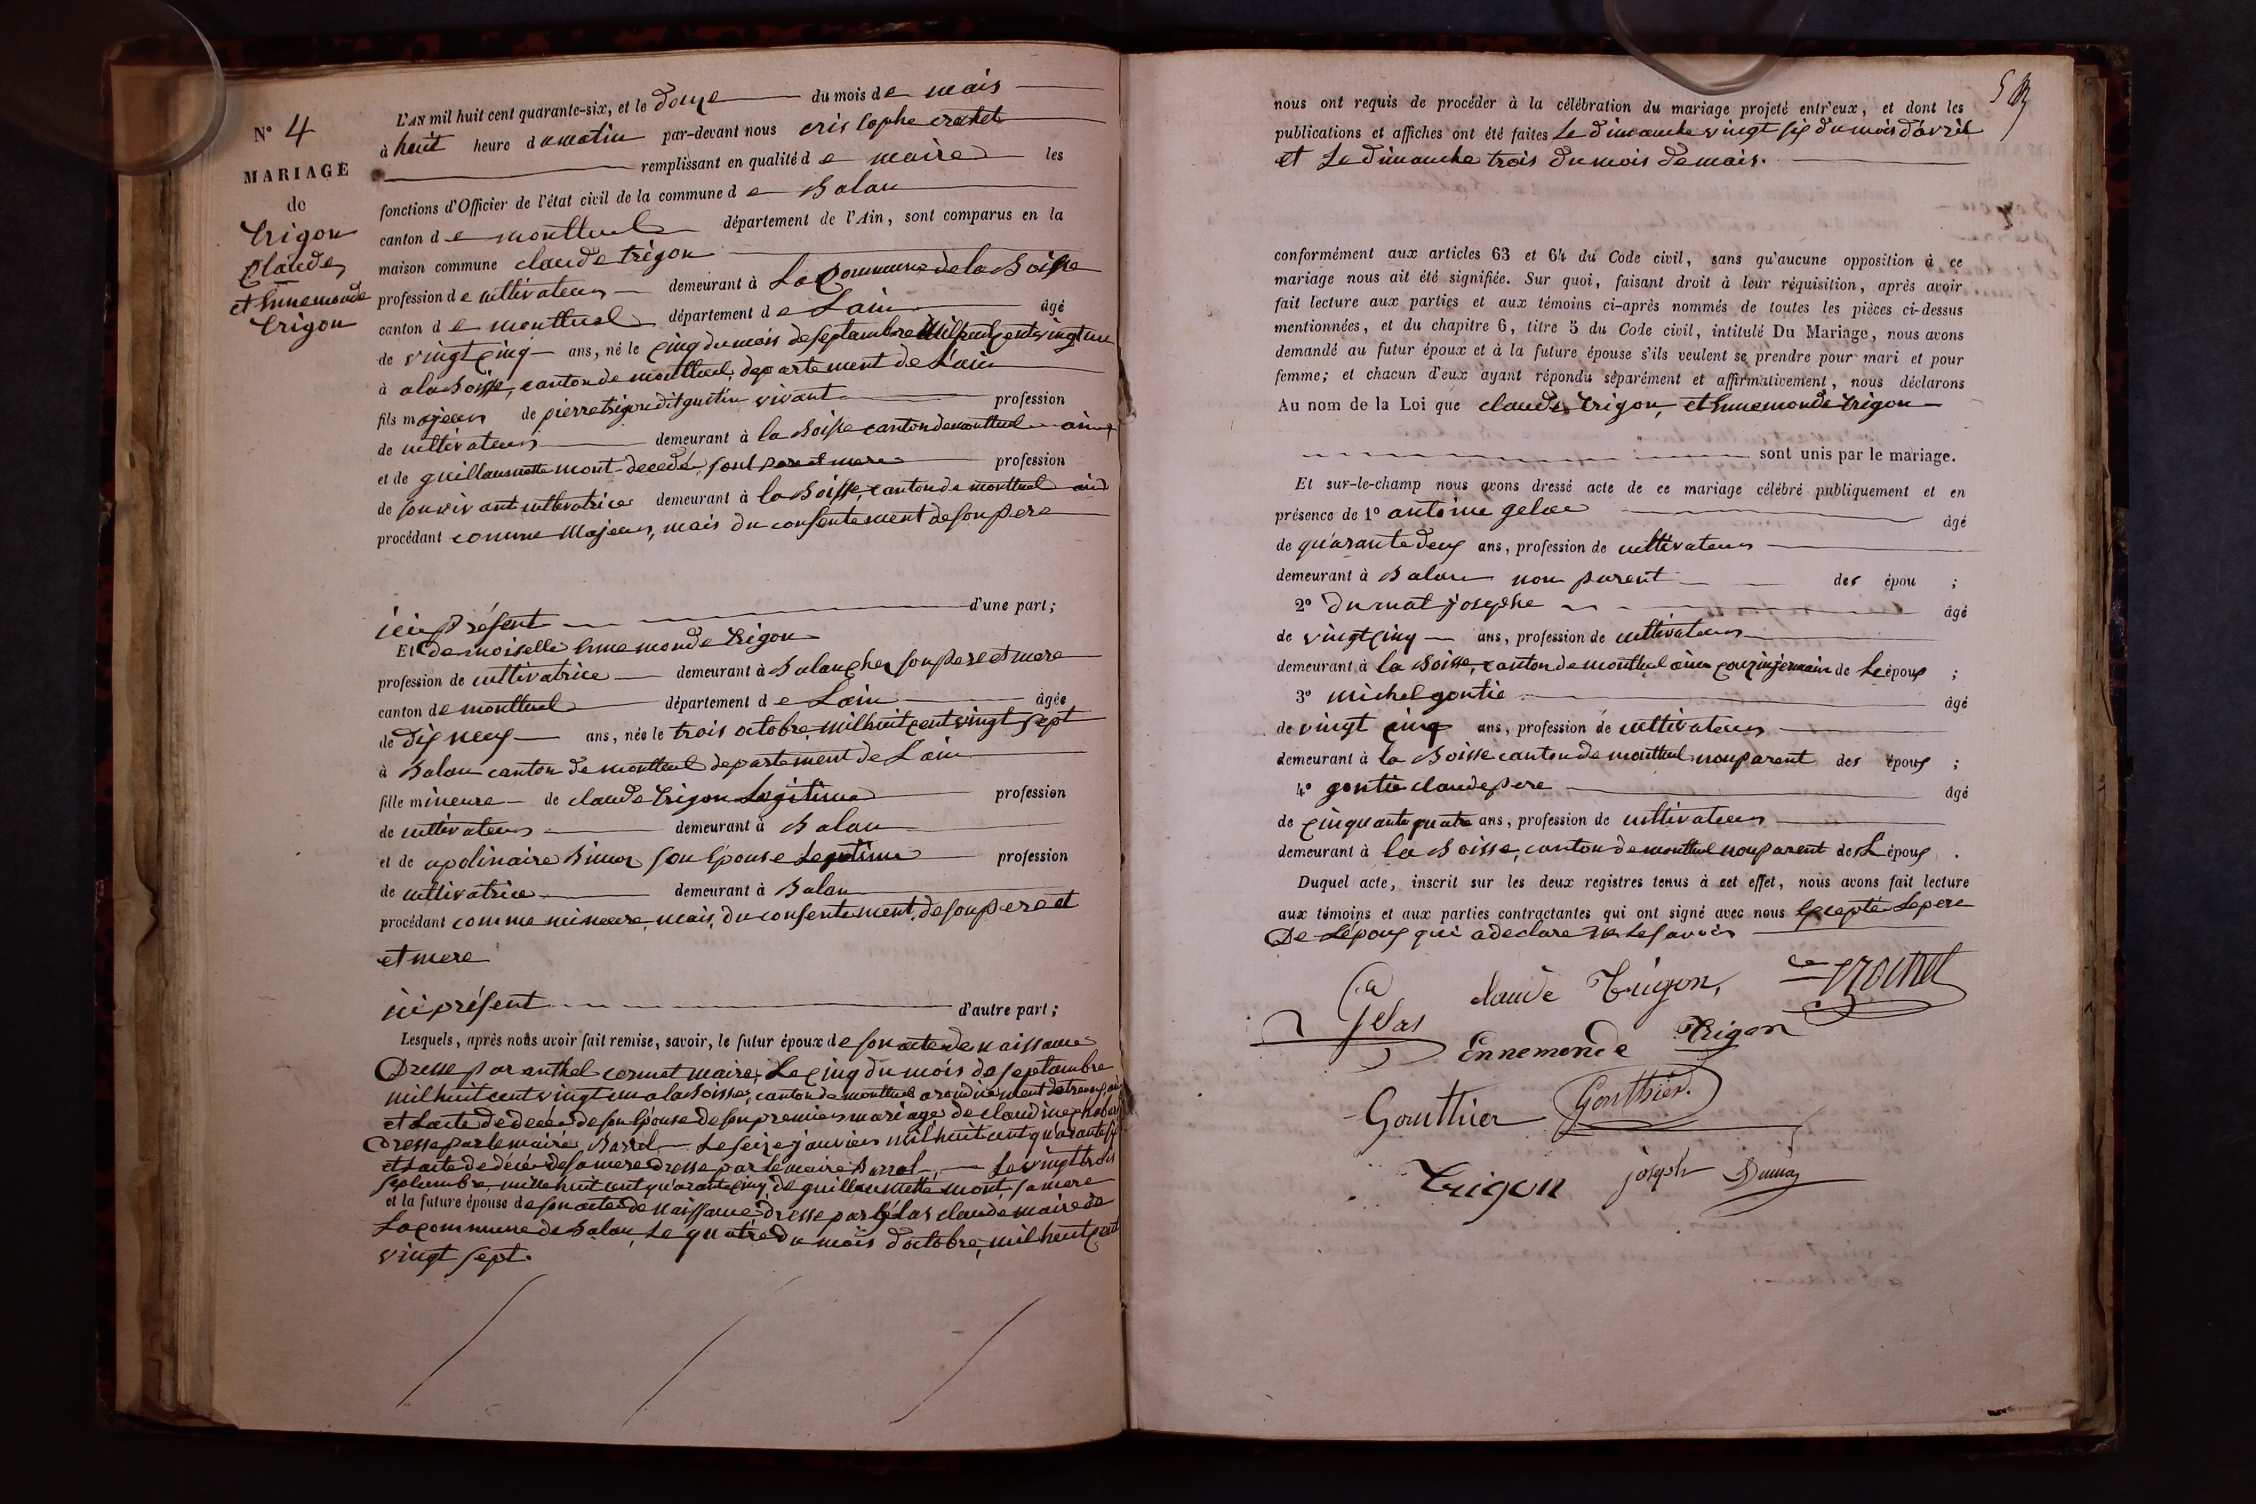 N° 4
MARIAGE
de
trigon
Claude
et Ennemonde
trigon
L'AN mil huit cent quarante-six, et le douze du mois de mais
à huit heure du matin par-devant nous cristophe crochet
remplissant en qualité de maire les
fonctions d'Officier de l'état civil de la commune de Balan
canton de montluel département de l'Ain, sont comparus en la
maison commune claude trigon
profession de cultivateur demeurant à La Commune de la Boisse
canton de montluel département de Lain âgé
de vingt cinq ans, né le cinq du mois de septambre mil huit cent vingt un
à a la Boisse, canton de montluel, departement de Lain
fils majeur de pierre trigon dit guétin vivant profession
de cultivateur demeurant à la Boisse canton de montluel ain
et de guillaumette mont decedé, sont pere et mere profession
de son vivant cultivatrice demeurant à la Boisse, canton de montluel ain
procédant comme Majeur, mais du consentement de son pere
ici présent d'une part;
Et demoiselle Ennemonde trigon
profession de cultivatrice demeurant à Balan chez son pere et mere
canton de montluel département de Lain âgée
de dix neuf ans, née le trois octobre, mil huit cent vingt sept
à Balan canton de montluel departement de Lain
fille mineure de claude trigon Legitime profession
de cultivateur demeurant à Balan
et de apolinaire son Epouse Legitime profession
de cultivatrice demeurant à Balan
procédant comme mineure, mais, du consentement, de son pere et
et mere
ici présent d'autre part;
Lesquels, après nous avoir fait remise, savoir, le futur époux de son acte de naissance
Dresse par anthel cermet maire, Le cinq du mois de septambre
mil huit cent vingt un a la Boisse, canton de montluel arondissement de trevoux, ain
et Lacte de deces de son Epouse de son premier mariage de claudine
Dresse par le maire Barrel Le seize janvier mil huit cent quarante six
et Lacte de décès de sa mere dresse par Le maire Barrel, Le vingt trois
septembre, mille huit cent quarante cinq de guillaumette mont, sa mere
et la future épouse de son acte de naissance dresse par Gélas claude maire de
La commune de Balan, Le quatre du mois d'octobre, mil huit cent
vingt sept.
nous ont requis de procéder à la célébration du mariage projeté entr'eux, et dont les
publications et affiches ont été faites Le dimanche vingt six du mois d'avril
et Le dimanche trois du mois de mais.
conformément aux articles 63 et 64 du Code civil, sans qu'aucune opposition à ce
mariage nous ait été signifiée. Sur quoi, faisant droit à leur réquisition, après avoir
fait lecture aux parties et aux témoins ci-après nommés de toutes les pièces ci-dessus
mentionnées, et du chapitre 6, titre 5 du Code civil, intitulé Du Mariage, nous avons
demandé au futur époux et à la future épouse s'ils veulent se prendre pour mari et pour
femme; et chacun d'eux ayant répondu séparément et affirmativement, nous déclarons
Au nom de la Loi que claude trigon, et Ennemonde trigon
sont unis par le mariage.
Et sur-le-champ nous avons dressé acte de ce mariage célébré publiquement et en
présence de 1° antoine gelas âgé
de quarante deux ans, profession de cultivateur
demeurant à Balan non parent des épou ;
2° Durnat josephe âgé
de vingt cinq ans, profession de cultivateur
demeurant à la Boisse, canton de montluel ain couzin jermain de Lépoux ;
3° michel gontie âgé
de vingt cinq ans, profession de cultivateur
demeurant à la Boisse canton de montluel non parent des époux ;
4° gontie claude pere âgé
de cinquante quatre ans, profession de cultivateur
demeurant à la Boisse, canton de montluel non parent des époux .
Duquel acte, inscrit sur les deux registres tenus à cet effet, nous avons fait lecture
aux témoins et aux parties contractantes qui ont signé avec nous Excepté Le pere
De Lépoux qui a declare ne Le savoir
a Gelas claude Trigon, Crochet
Ennemonde Trigon
Gonthier Gonthier.
Trigon joseph